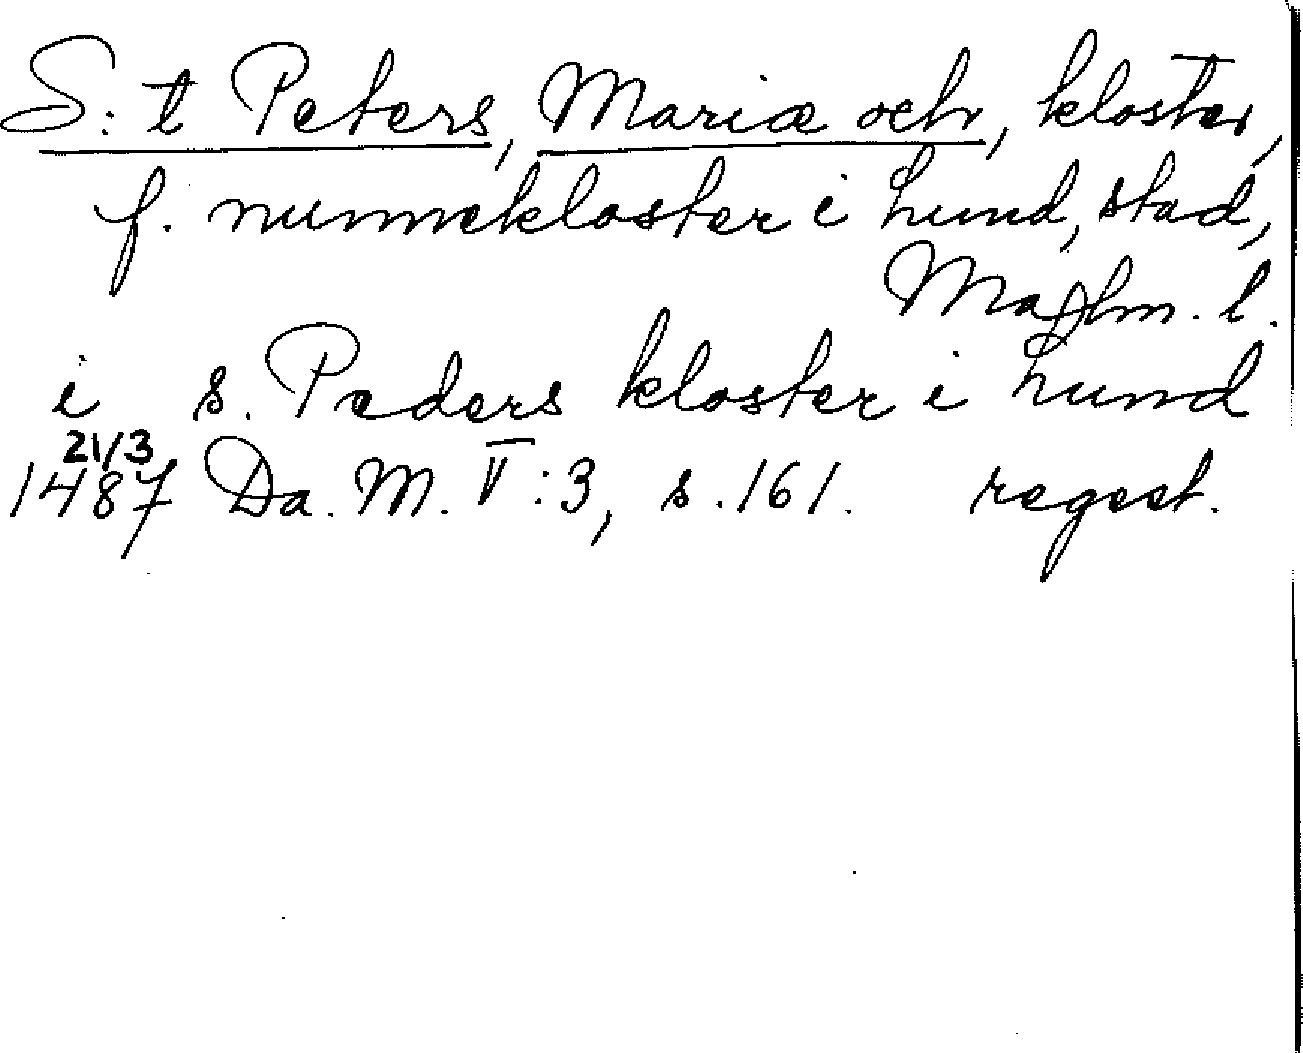 S:t Peters, Mariæ och, kloster,
f. nunnekloster i Lund, stad,
Malm. l.
i s. Peders kloster i Lund
21/3
1487 Da. M. V:3, s. 161. regest.